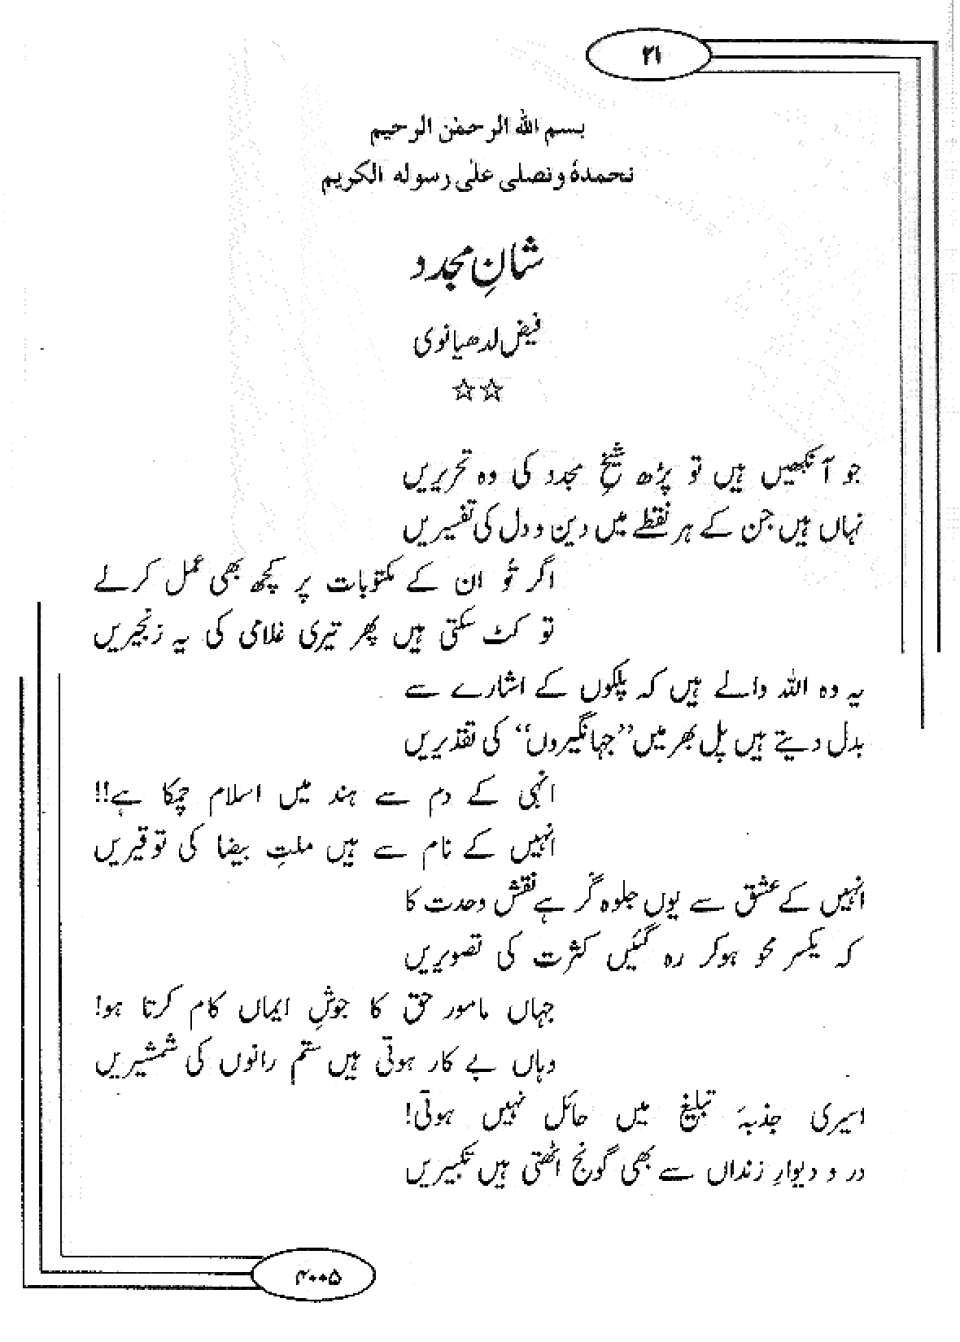 ۲۱
بسم الله الرحمٰن الرحیم
نحمدہٗ ونصلی علٰی رسولہ الکریم
شانِ مجدد
فیض لدھیانوی
☆☆
جو آنکھیں ہیں تو پڑھ شیخِ مجدد کی وہ تحریریں
نہاں ہیں جن کے ہر نقطے میں دین و دل کی تفسیریں
اگر تُو ان کے مکتوبات پر کچھ بھی عمل کرلے
تو کٹ سکتی ہیں پھر تیری غلامی کی یہ زنجیریں
یہ وہ اللہ والے ہیں کہ پلکوں کے اشارے سے
بدل دیتے ہیں پل بھر میں ”جہانگیروں“ کی تقدیریں
انہی کے دم سے ہند میں اسلام چمکا ہے!!
انہیں کے نام سے ہیں ملتِ بیضا کی توقیریں
انہیں کے عشق سے یوں جلوہ گر ہے نقش وحدت کا
کہ یکسر محو ہوکر رہ گئیں کثرت کی تصویریں
جہاں مامورِ حق کا جوشِ ایماں کام کرتا ہو!
وہاں بے کار ہوتی ہیں ستم رانوں کی شمشیریں
اسیری جذبۂ تبلیغ میں حائل نہیں ہوتی!
در و دیوارِ زنداں سے بھی گونج اٹھتی ہیں تکبیریں
۴۰۰۵